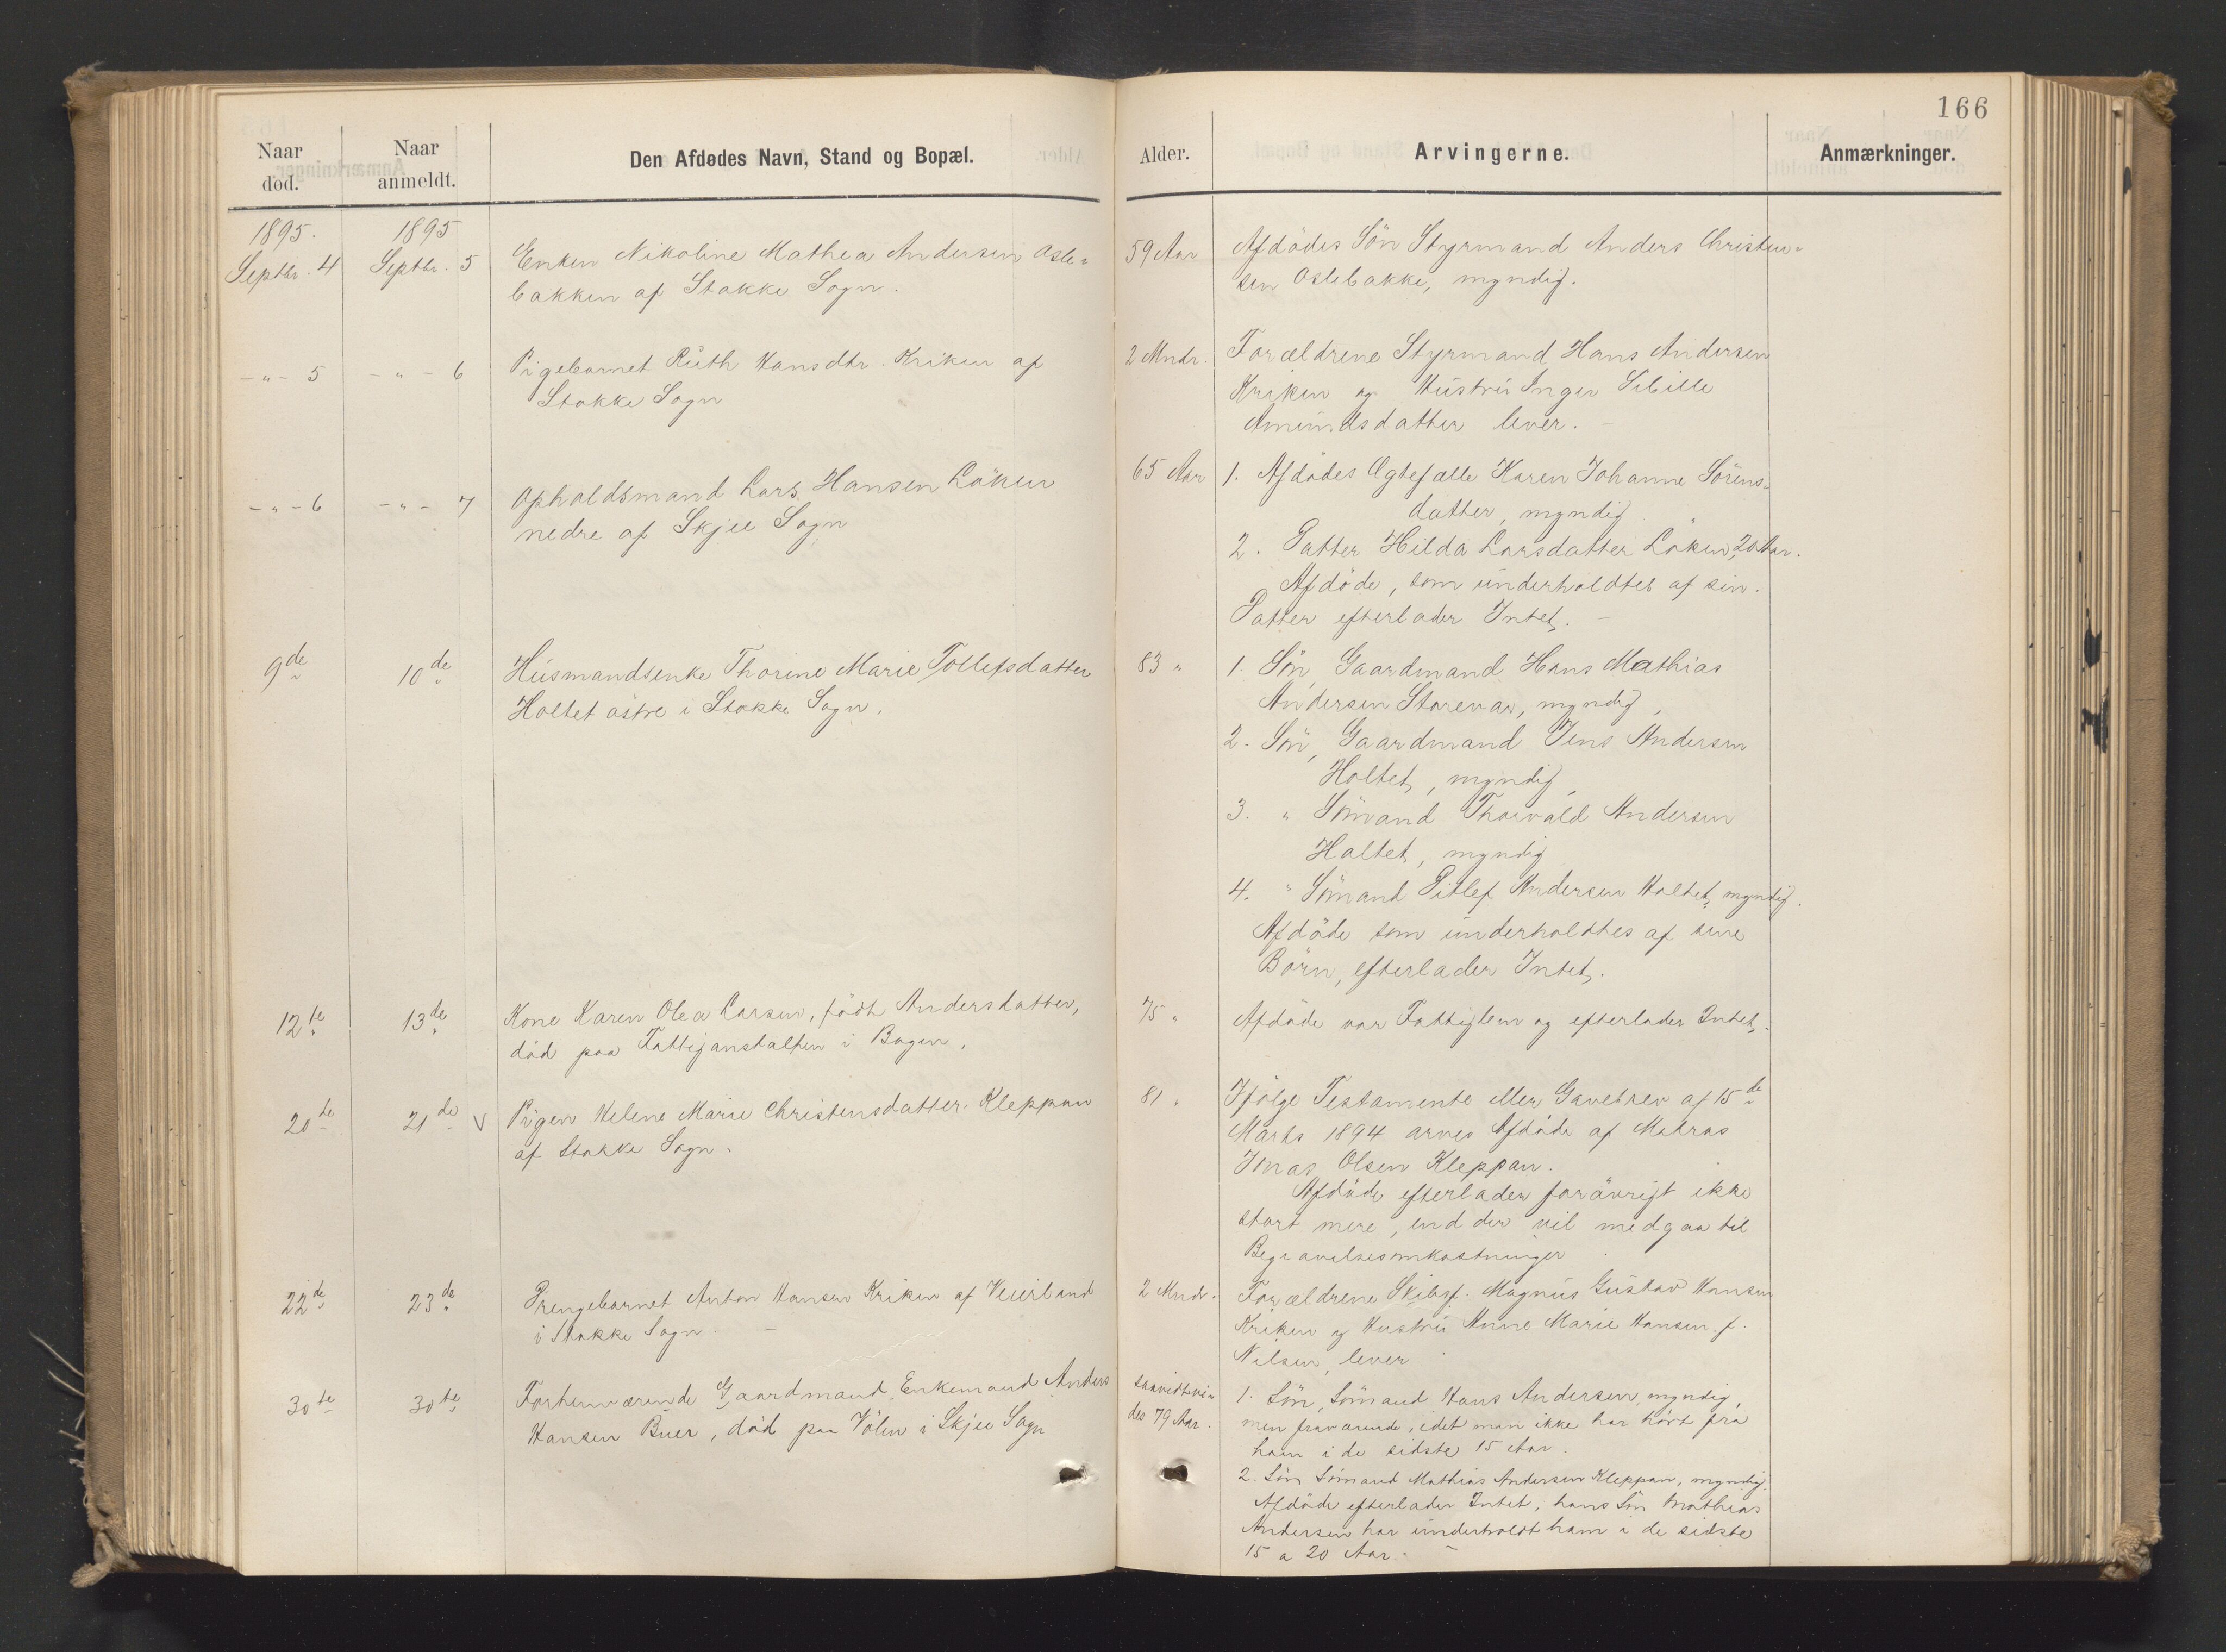 166
Naar død.
Naar anmeldt.
Den Afdødes Navn, Stand og Bopæl.
Alder.
Arvingerne.
Anmærkninger.
1895. 1895
Septbr. 4 Septbr. 5 Enken Nikoline Mathea Andersen Osle-
bakken af Stokke Sogn.
59 Aar Afdödes Sön Styrmand Anders Christen-
sen Oslebakke, myndig.
-"- 5 -"- 6 Pigebarnet Ruth Hansdtr. Kriken af
Stokke Sogn
2 Mndr. Forældrene Styrmand Hans Andersen
Kriken og Hustru Inger Sibille
Amundsdatter lever. -
-"- 6 -"- 7 Opholdsmand Lars Hansen Löken
nedre af Skjee Sogn
65 Aar 1. Afdödes Ægtefælle Karen Johanne Sörens-
datter, myndig
2. Datter Hilda Larsdatter Löken, 20 Aar.
Afdöde, som underholdtes af sin
Datter efterlader Intet. -
9de 10de Husmandsenke Thorine Marie Tollefsdatter
Holtet östre i Stokke Sogn.
83 " 1. Sön, Gaardmand Hans Mathias
Andersen Storevar, myndig,
2. Sön, Gaardmand Jens Andersen
Holtet, myndig,
3. " Sömand Thorvald Andersen
Holtet, myndig
4. " Sömand Ditlef Andersen Holtet, myndig.
Afdöde som underholdtes af sine
Börn, efterlader Intet.
12te 13de Kone Karen Olea Larsen, födt Andersdatter,
död paa Fattiganstalten i Bogen.
75 " Afdöde var Fattiglem og efterlader Intet.
20de 21de V Pigen Helene Marie Christensdatter Kleppan
af Stokke Sogn.
81 " Ifölge Testamente eller Gavebrev af 15de
Marts 1894 arves Afdöde af Matros
Jonas Olsen Kleppan.
Afdöde efterlader forövrigt ikke
stort mere, end der vil medgaa til
Begravelsesomkostninger
22de 23de Drengebarnet Anton Hansen Kriken af Veierland
i Stokke Sogn. -
2 Mndr. Forældrene Skibsf. Magnus Gustav Hansen
Kriken og Hustru Anne Marie Hansen f.
Nilsen, lever
30te 30te Forhenværende Gaardmand, Enkemand Anders
Hansen Buer, död paa Völen i Skjee Sogn
saavidtvi-
des 79 Aar. 1. Sön, Sömand Hans Andersen, myndig,
men fraværende, idet man ikke har hört fra
ham i de sidste 15 Aar.
2. Sön Sömand Mathias Andersen Kleppan, myndig.
Afdöde efterlader Intet, hans Sön Mathias
Andersen har underholdt ham i de sidste
15 a 20 Aar. -